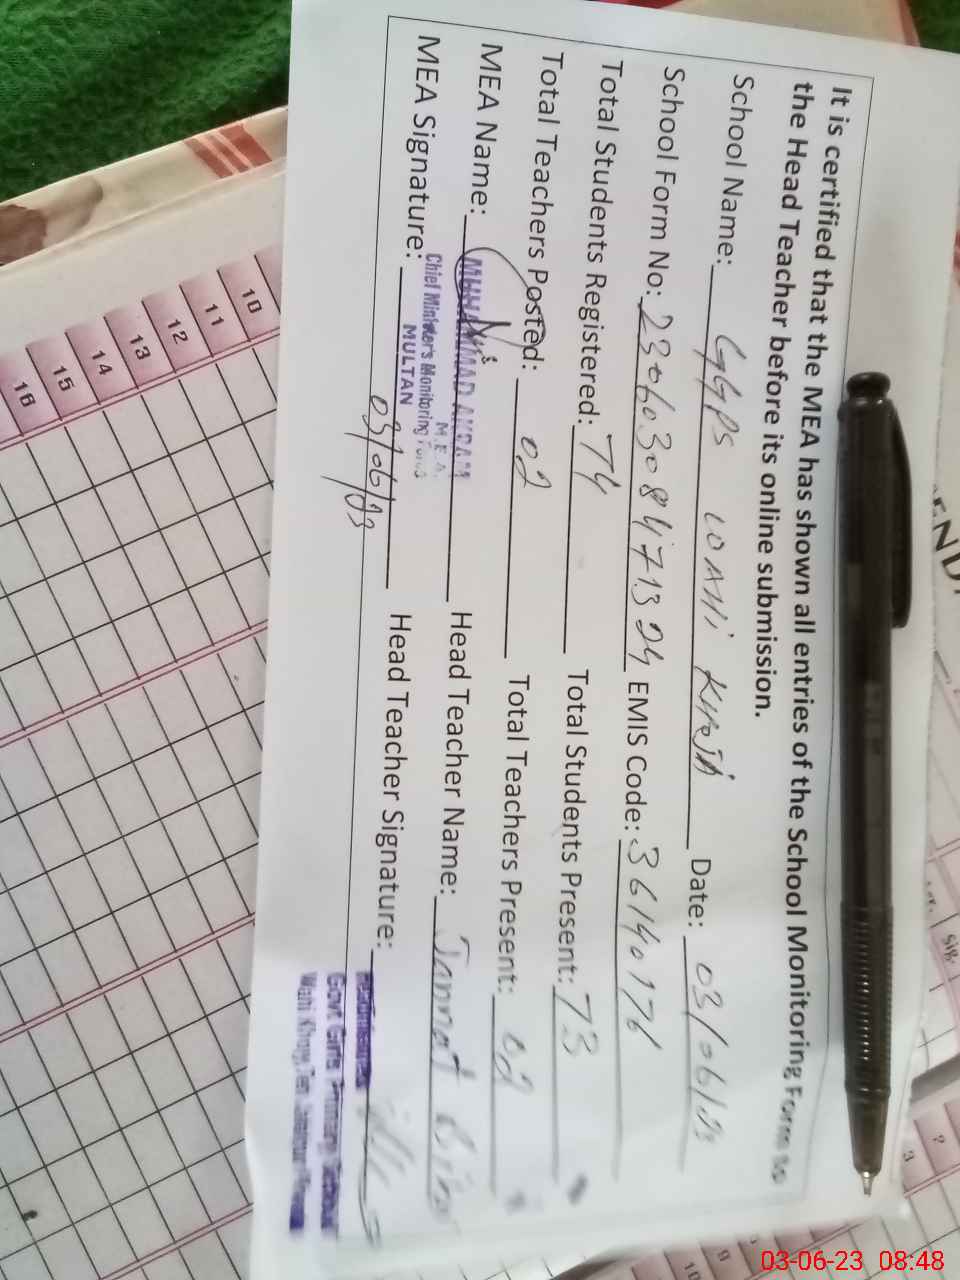 It is certified that the MEA has shown all entries of the School Monitoring Form to
the Head Teacher before its online submission.
School Name: GGPS Date: 03/06/23
School Form No: EMIS Code: 36140176
Total Students Registered: 74 Total Students Present: 73
Total Teachers Posted: 02 Total Teachers Present: 02
MEA Name: MUHAMMAD AKRAM Head Teacher Name: Jannat
M.E.A.
MEA Signature: Chief Minister's Monitoring Head Teacher Signature:
MULTAN
03/06/23
Govt Girls Primary School
10
11
12
13
14
15
16
Sig.
03-06-23 08:48